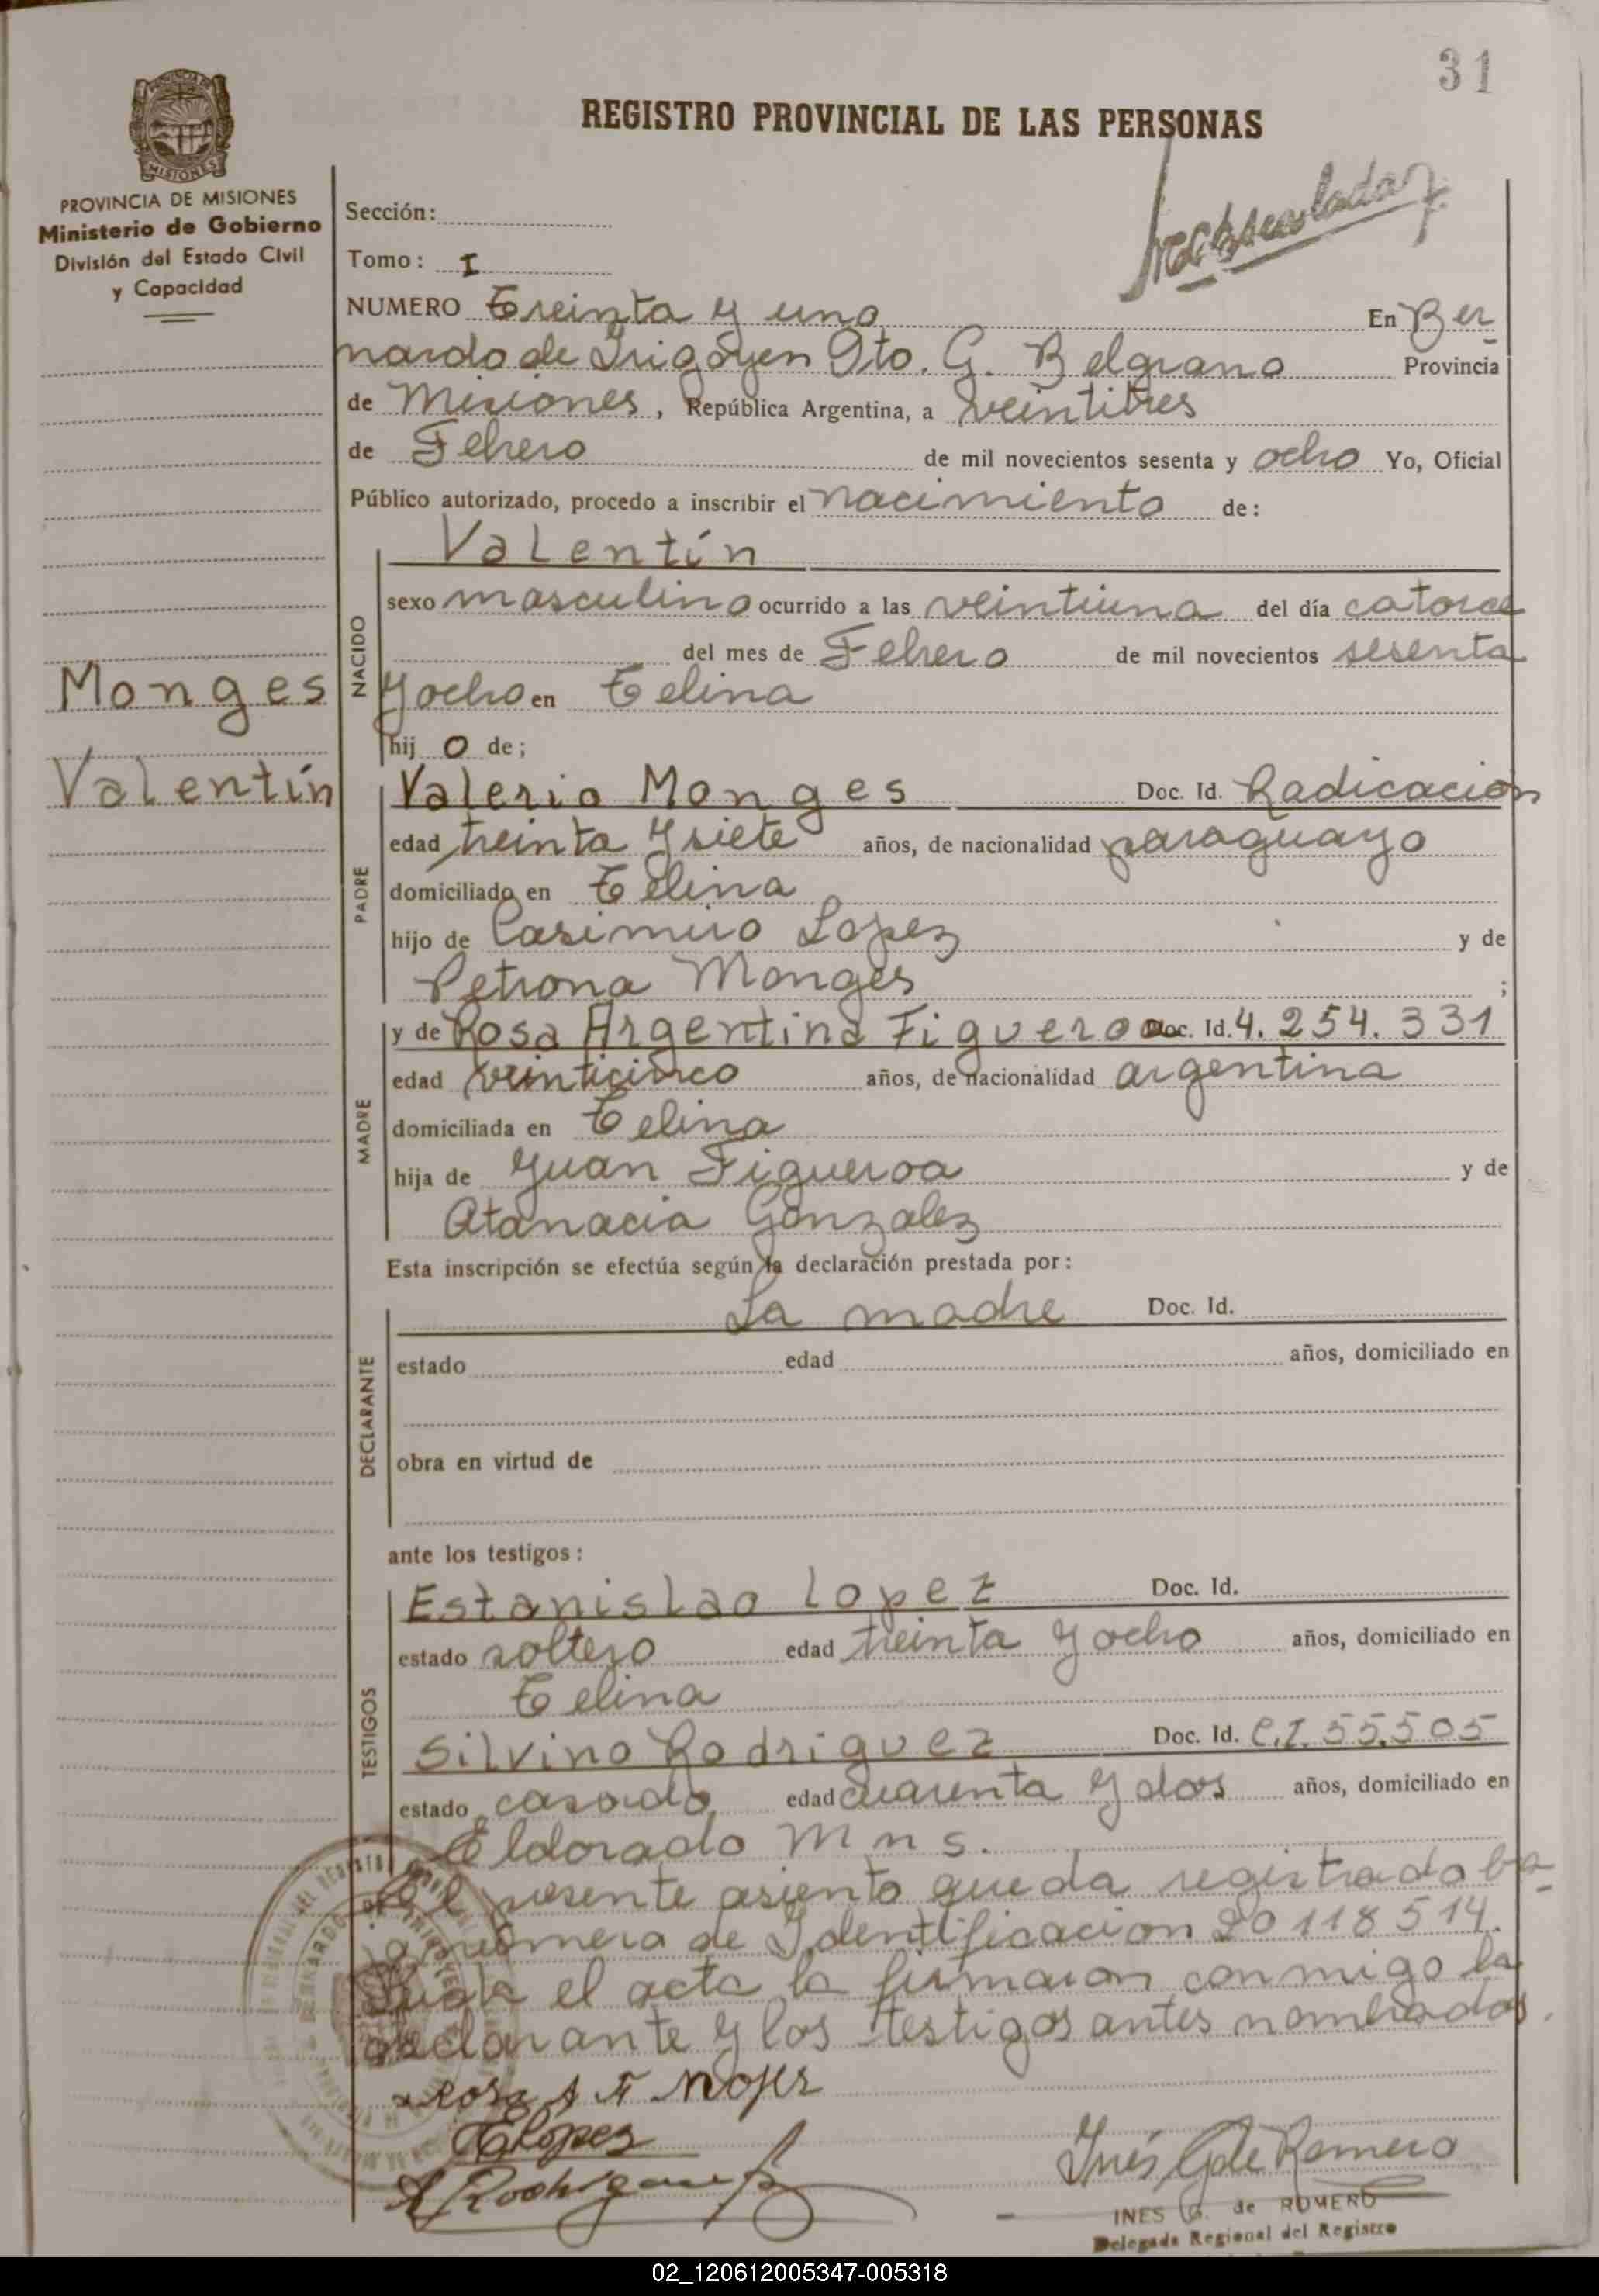 31
REGISTRO PROVINCIAL DE LAS PERSONAS
PROVINCIA DE MISIONES
Ministerio de Gobierno
División del Estado Civil
y Capacidad
Sección:
Tomo: I
NUMERO Treinta y uno En Ber
nardo de Irigoyen Dto. G. Belgrano Provincia
de Misiones, República Argentina, a veintitres
de Febrero de mil novecientos sesenta y ocho Yo, Oficial
Público autorizado, procedo a inscribir el nacimiento de:
Valentín
NACIDO
sexo masculino ocurrido a las veintiuna del día catorce
del mes de Febrero de mil novecientos sesenta
y ocho en Celina
hijo de;
Monges
Valentín
PADRE
Valerio Monges Doc. Id. Radicación
edad treinta y siete años, de nacionalidad paraguayo
domiciliado en Celina
hijo de Casimiro Lopez y de
Petrona Monges ;
MADRE
y de Rosa Argentina Figueroa Doc. Id. 4.254.331
edad veinticinco años, de nacionalidad argentina
domiciliada en Celina
hija de Juan Figueroa y de
Atanacia Gonzalez
Esta inscripción se efectúa según la declaración prestada por:
DECLARANTE
La madre Doc. Id.
estado edad años, domiciliado en
obra en virtud de
ante los testigos:
TESTIGOS
Estanislao Lopez Doc. Id.
estado soltero edad treinta y ocho años, domiciliado en
Celina
Silvino Rodriguez Doc. Id. C.I. 55.505
estado casado edad cuarenta y dos años, domiciliado en
Eldorado Mns.
El presente asiento queda registrado ba-
jo número de Identificacion 20118514.
el acta la firmaron conmigo la
declarante y los testigos antes nombrados.
Rosa A F
Lopez
Rodriguez
Inés G de Romero
INES G. de ROMERO
Delegada Regional del Registro
02_120612005347-005318